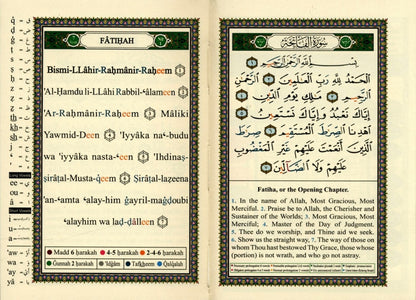 FÂTIḤAH
Bismi-LLâhir-Raḥmânir-Raḥeem ①
'Al-Ḥamdu li-LLâhi Rabbil-ʿâlameen ②
'Ar-Raḥmânir-Raḥeem ③ Mâliki
Yawmid-Deen ④ 'Iyyâka naʿ-budu
wa 'iyyâka nasta-ʿeen ⑤ 'Ihdinaṣ-
Ṣirâṭal-Musta-qeem ⑥ Ṣirâṭal-lazeena
'an-ʿamta ʿalay-him ġayril-maġdoubi
ʿalayhim wa laḍ-ḍâlleen ⑦
Madd 6 ḥarakah 4-5 ḥarakah 2-4-6 ḥarakah
Ġunnah 2 ḥarakah 'Idġâm Tafkheem Qalqalah
سُورَةُ الْفَاتِحَةِ
بِسْمِ اللَّهِ الرَّحْمَٰنِ الرَّحِيمِ ①
الْحَمْدُ لِلَّهِ رَبِّ الْعَالَمِينَ ② الرَّحْمَٰنِ
الرَّحِيمِ ③ مَالِكِ يَوْمِ الدِّينِ ④
إِيَّاكَ نَعْبُدُ وَإِيَّاكَ نَسْتَعِينُ ⑤
اهْدِنَا الصِّرَاطَ الْمُسْتَقِيمَ ⑥ صِرَاطَ
الَّذِينَ أَنْعَمْتَ عَلَيْهِمْ غَيْرِ الْمَغْضُوبِ
عَلَيْهِمْ وَلَا الضَّالِّينَ ⑦
Fatiha, or the Opening Chapter.
1. In the name of Allah, Most Gracious, Most
Merciful. 2. Praise be to Allah, the Cherisher and
Sustainer of the Worlds; 3. Most Gracious, Most
Merciful; 4. Master of the Day of Judgment.
5. Thee do we worship, and Thine aid we seek.
6. Show us the straight way, 7. The way of those on
whom Thou hast bestowed Thy Grace, those whose
(portion) is not wrath, and who go not astray.